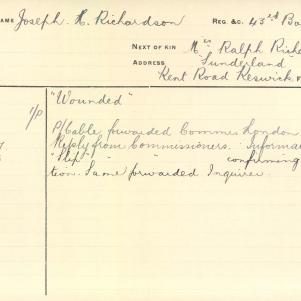 NAME Joseph. H. Richardson REG. &c. 43rd Ba
NEXT OF KIN Mrs Ralph Richa
ADDRESS "Sunderland"
Kent Road Keswick
"Wounded"
P/Cable forwarded Comms London
Reply from Commissioners. Informa
"Slip" " " confirming
tion. Same forwarded Inquirer